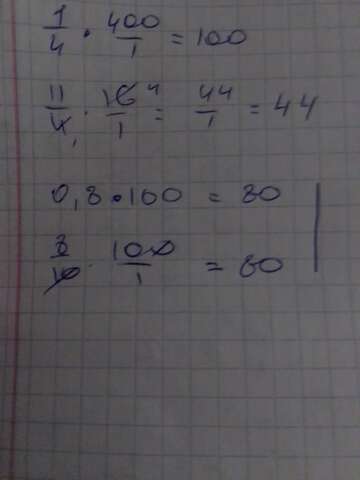 1/4 · 400/1 = 100
11/4 · 16/1 = 44/1 = 44
0,8 · 100 = 80
8/10 · 100/1 = 80